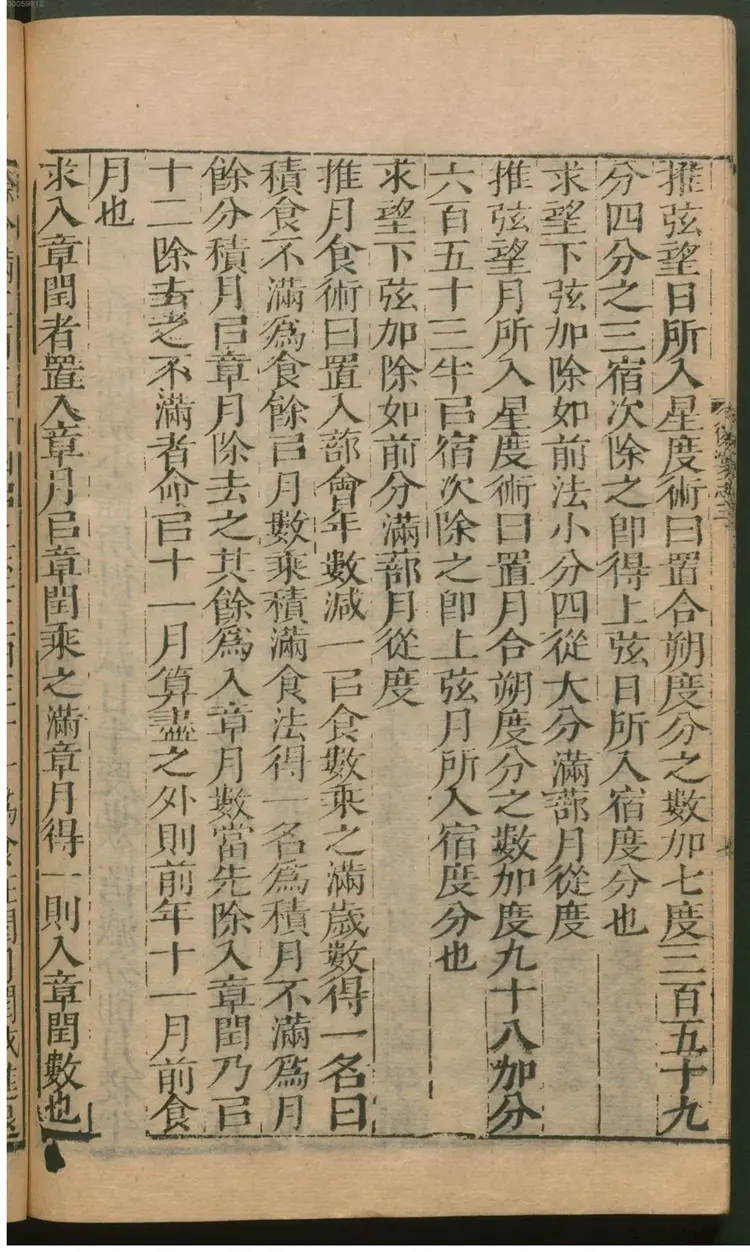 推弦望日所入星度術曰置合朔度分之數加七度三百五十九
分四分之三宿次除之卽得上弦日所入宿度分也
求望下弦加除如前法小分四從大分滿蔀月從度
推弦望月所入星度術曰置月合朔度分之數加度九十八加分
六百五十三半㠯宿次除之卽上弦月所入宿度分也
求望下弦加除如前分滿蔀月從度
推月食術曰置入蔀會年數減一㠯食數乘之滿歲數得一名曰
積食不滿爲食餘㠯月數乘積滿食法得一名爲積月不滿爲月
餘分積月㠯章月除去之其餘爲入章月數當先除入章閏乃㠯
十二除去之不滿者命㠯十一月算盡之外則前年十一月前食
月也
求入章閏者置入章月㠯章閏乘之滿章月得一則入章閏數也
00059612